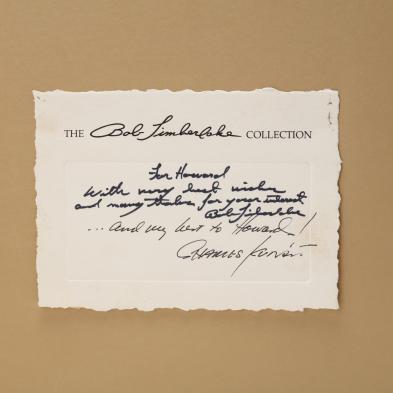 THE Bob Timberlake COLLECTION
For Howard
With very best wishes
and many thanks for your interest
Bob Timberlake
... and my best to Howard!
CHARLES KURALT